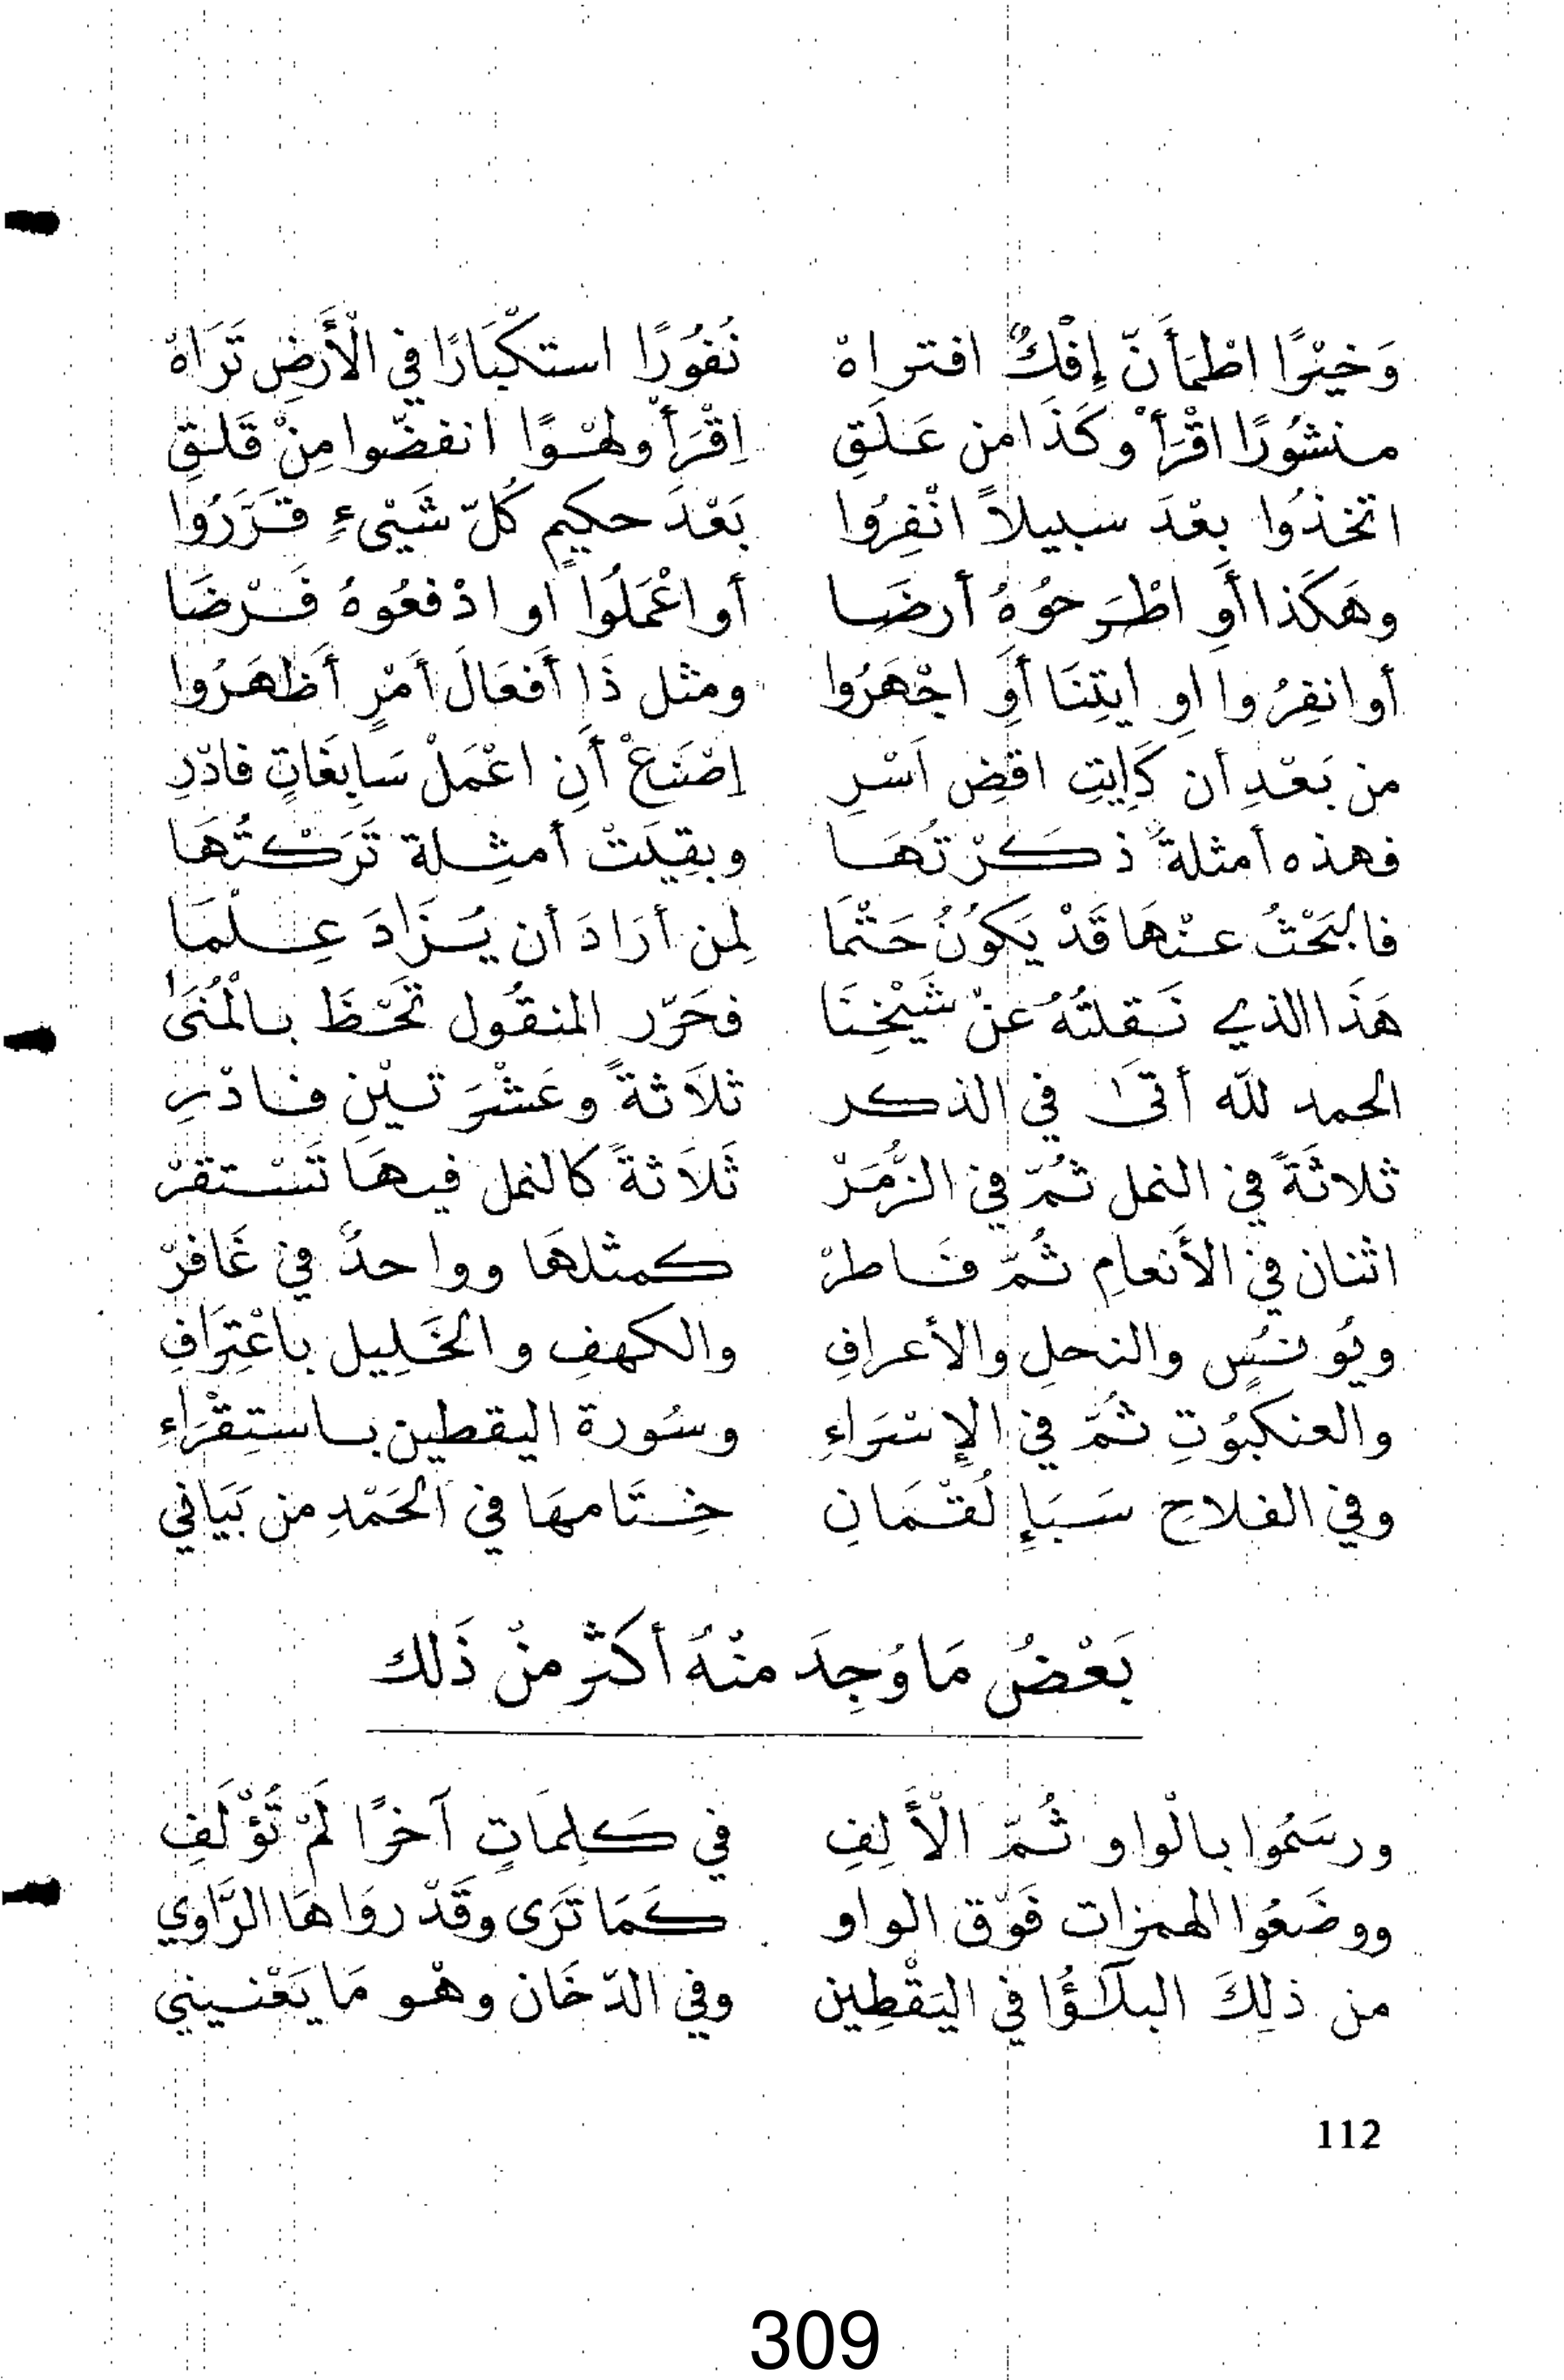 وَخَيْرًا اطْمَأَنَّ إِفْكٌ افتراهْ نُفُورًا استكْبَارًا في الْأَرضِ تَرَاهْ
منشُورًا اقْرَأْ وكَذَا من عَلَقِ اِقْرَأْ ولهْوًا انفضّوا مِنْ قَلقِ
اتخذُوا بعْدَ سبيلاً انْفِرُوا بَعْدَ حكيمٍ كُلّ شَيْىءٍ قَرَّرُوا
وهَكَذا أَوِ اطْرَحوُهُ أرضَا أو اعْمَلُوا أو ادْفعُوهُ فَرْضَا
أو انفِرُوا او ايتِنَا أَوِ اجْهَرُوا ومثل ذَا أَفعَالَ أَمْرٍ أَظهَرُوا
من بَعْدِ أن كَايتِ اقضِ اَسْرِ اِصْنَعْ أَنِ اعْمَلْ سَابِغَاتٍ فادْرِ
فهذه أمثلةٌ ذكرْتُهَا وبقِيَتْ أمثِلة تَرَكْتُهَا
فالبَحْثُ عنْهَا قَدْ يَكُونُ حَتْمَا لِمن أرَادَ أن يُزَادَ عِلْمَا
هَذَا الذي نَقلتُهُ عنْ شَيْخِنَا فحَرّر المنقُول تَحْظَ بالْمُنَىٰ
الحمد لله أتىٰ في الذكر ثلاَثةً وعَشْرَتيْنِ فادْرِ
ثلاثَةً في النمل ثُمّ في الزُّمَرْ ثَلاَثةً كالنمل فيهَا تَسْتقرّ
اثنان في الأَنعامِ ثُمّ فاطرْ كمثلهَا وواحدٌ في غَافرْ
ويُونسٍ والنحلِ والأعرافِ والكهفِ والخَلِيل باعْتِرَافِ
والعنكبُوتِ ثُمّ في الإسْرَاءِ وسُورة اليقطين باستِقْرَاءِ
وفي الفلاحِ سَبَإِ لُقْمَانِ خِتَامهَا في الحَمْدِ من بَيَاني
بَعْضُ مَا وُجِدَ منْهُ أكثر منْ ذَلك
ورسَمُوا بالْواو ثُمّ الْأَلِفِ في كَلِمَاتٍ آخرًا لَمْ تُؤْلَفِ
ووضَعُوا الهمزات فَوْق الواو كَمَا تَرَى وقَدْ روَاهَا الرَّاوي
من ذلِكَ البلاَؤُا في اليَقْطِين وفي الدّخَان وهْو مَا يَعْنيني
112
309